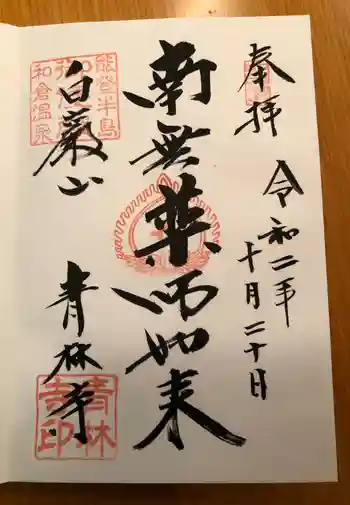 奉拝
令和二年
十月二十日
南無薬师如来
能登半島
和倉温泉
白巌山
青林寺
青林
寺印